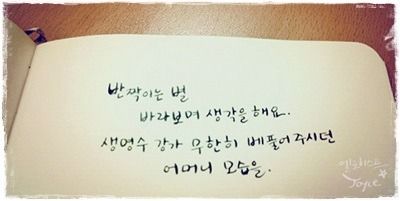 반짝이는 별
바라보며 생각을 해요.
생명수 강가 무한히 베풀어 주시던
어머니 모습을.
Joyce